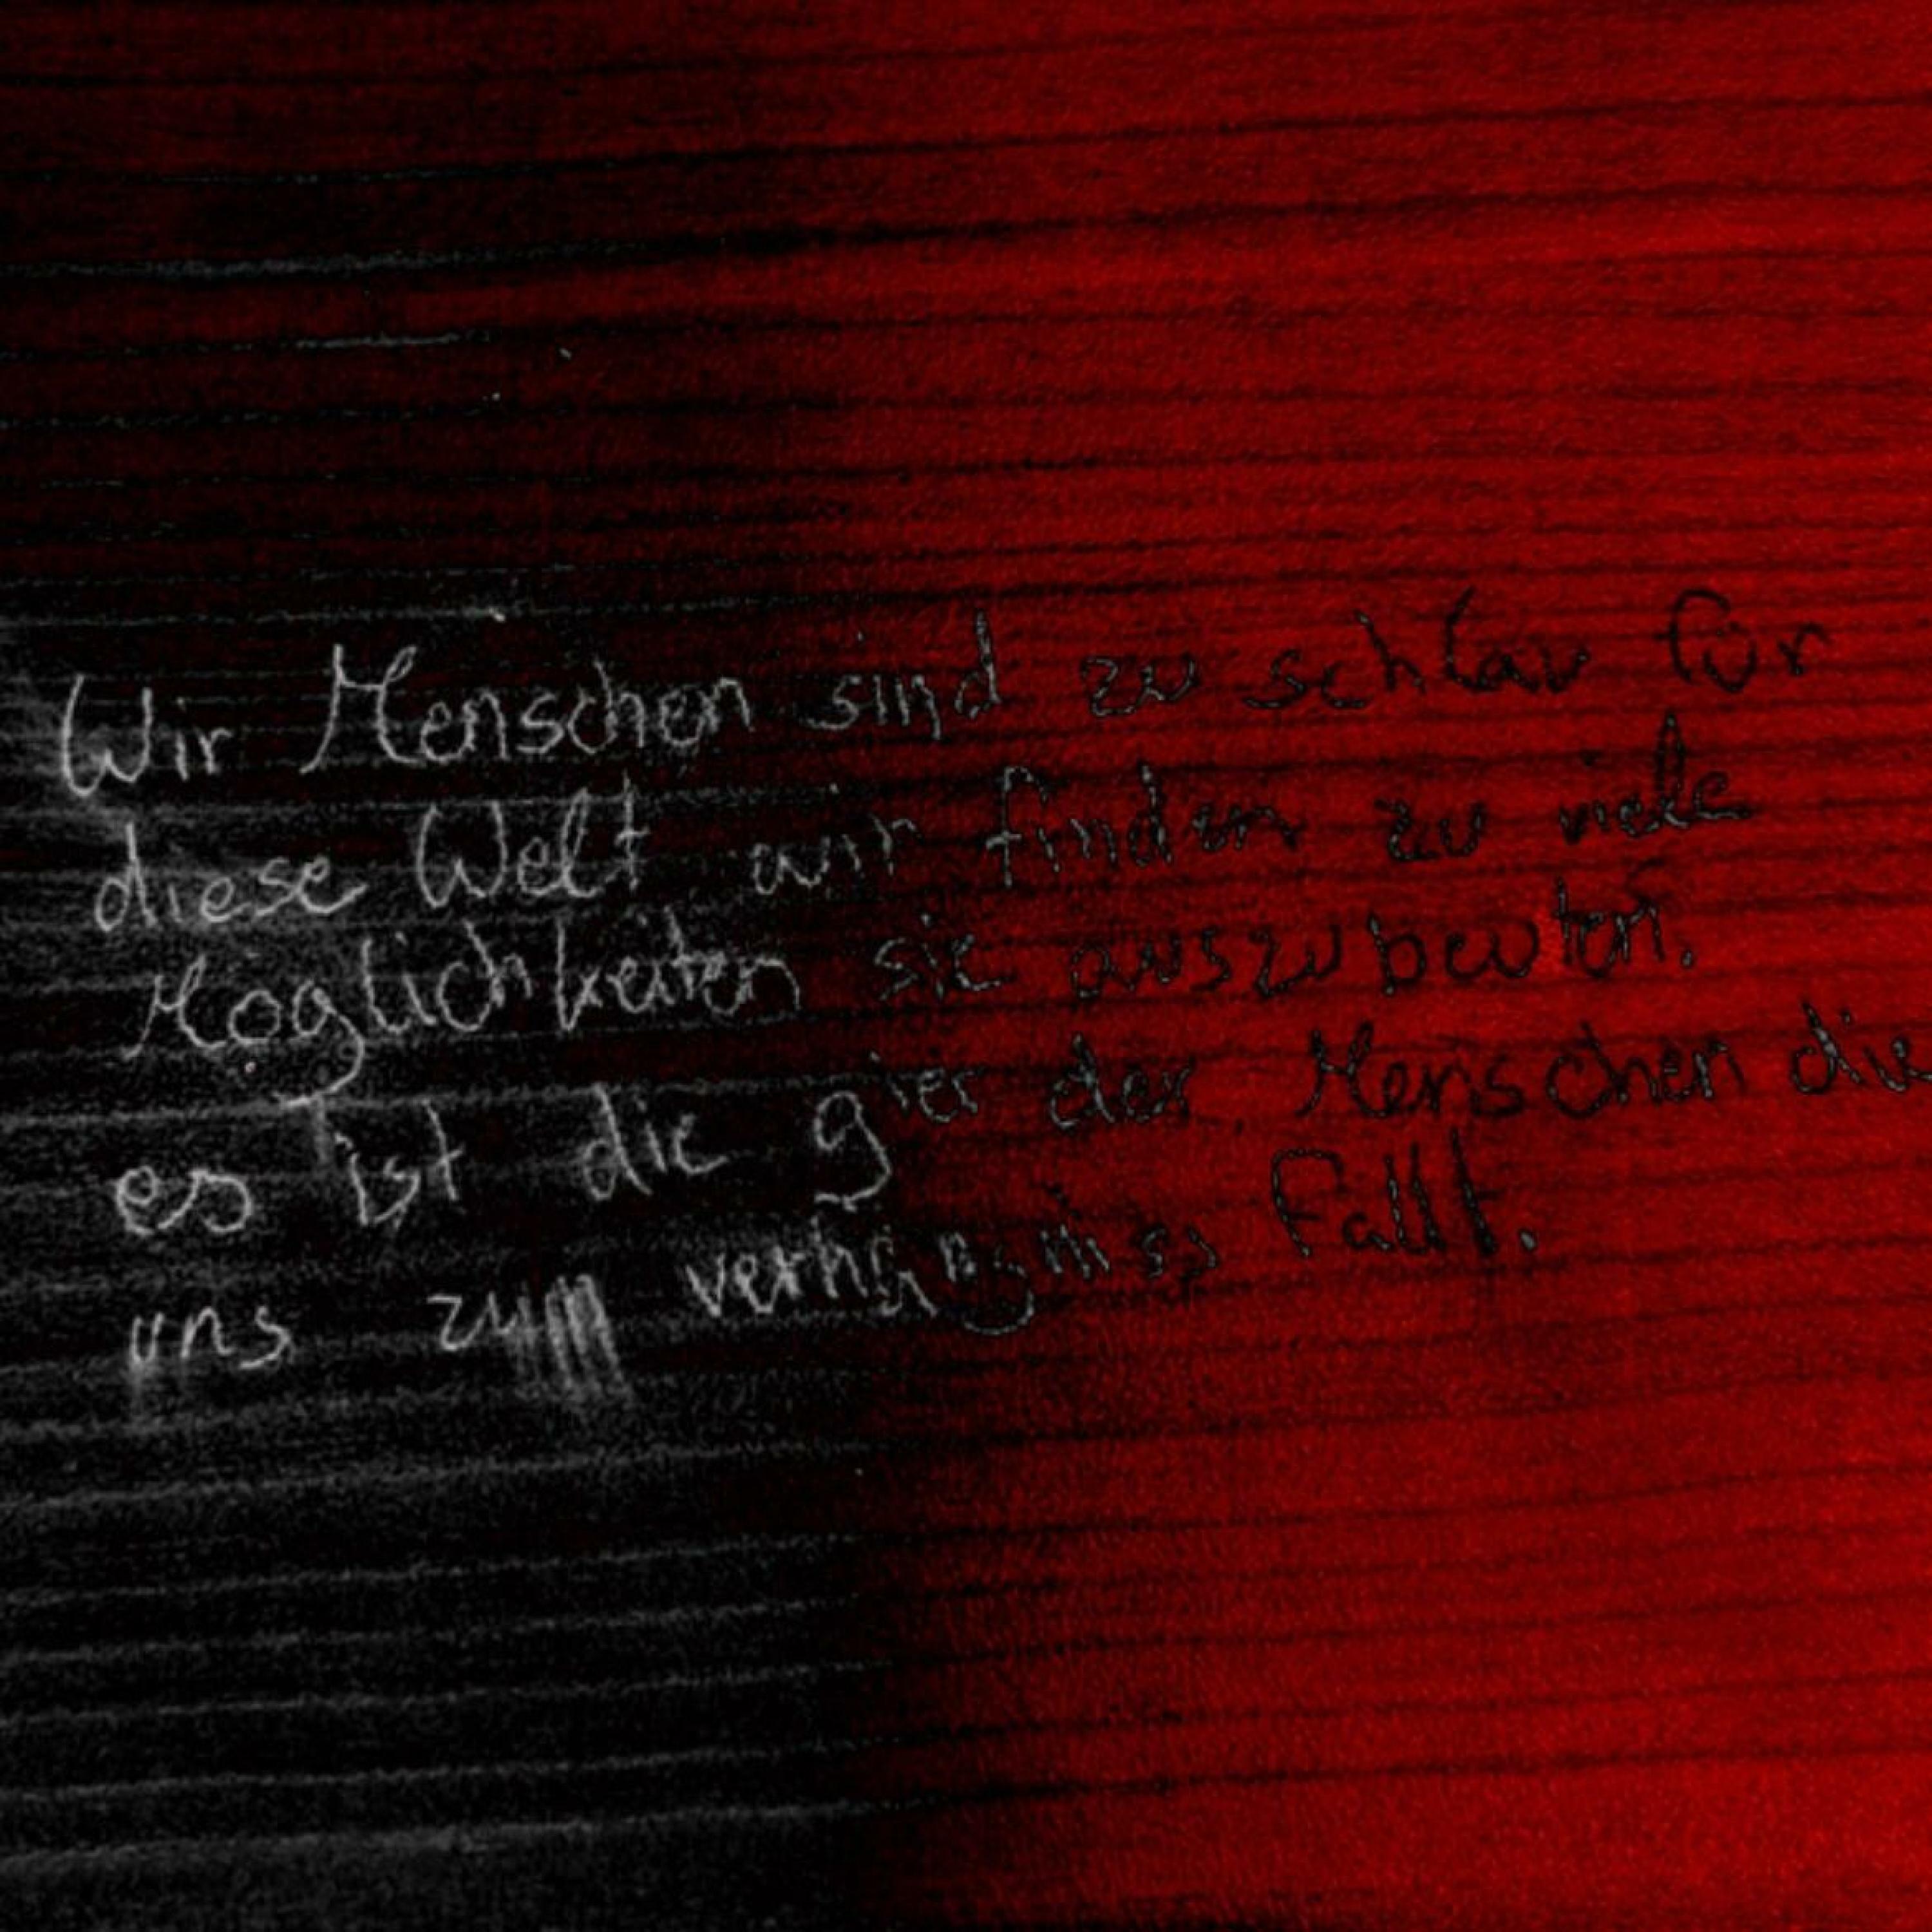 Wir Menschen sind zu schlau für
diese Welt wir finden zu viele
Möglichkeiten sie auszubeuten.
es ist die gier der Menschen die
uns zum verhängniss Fällt.